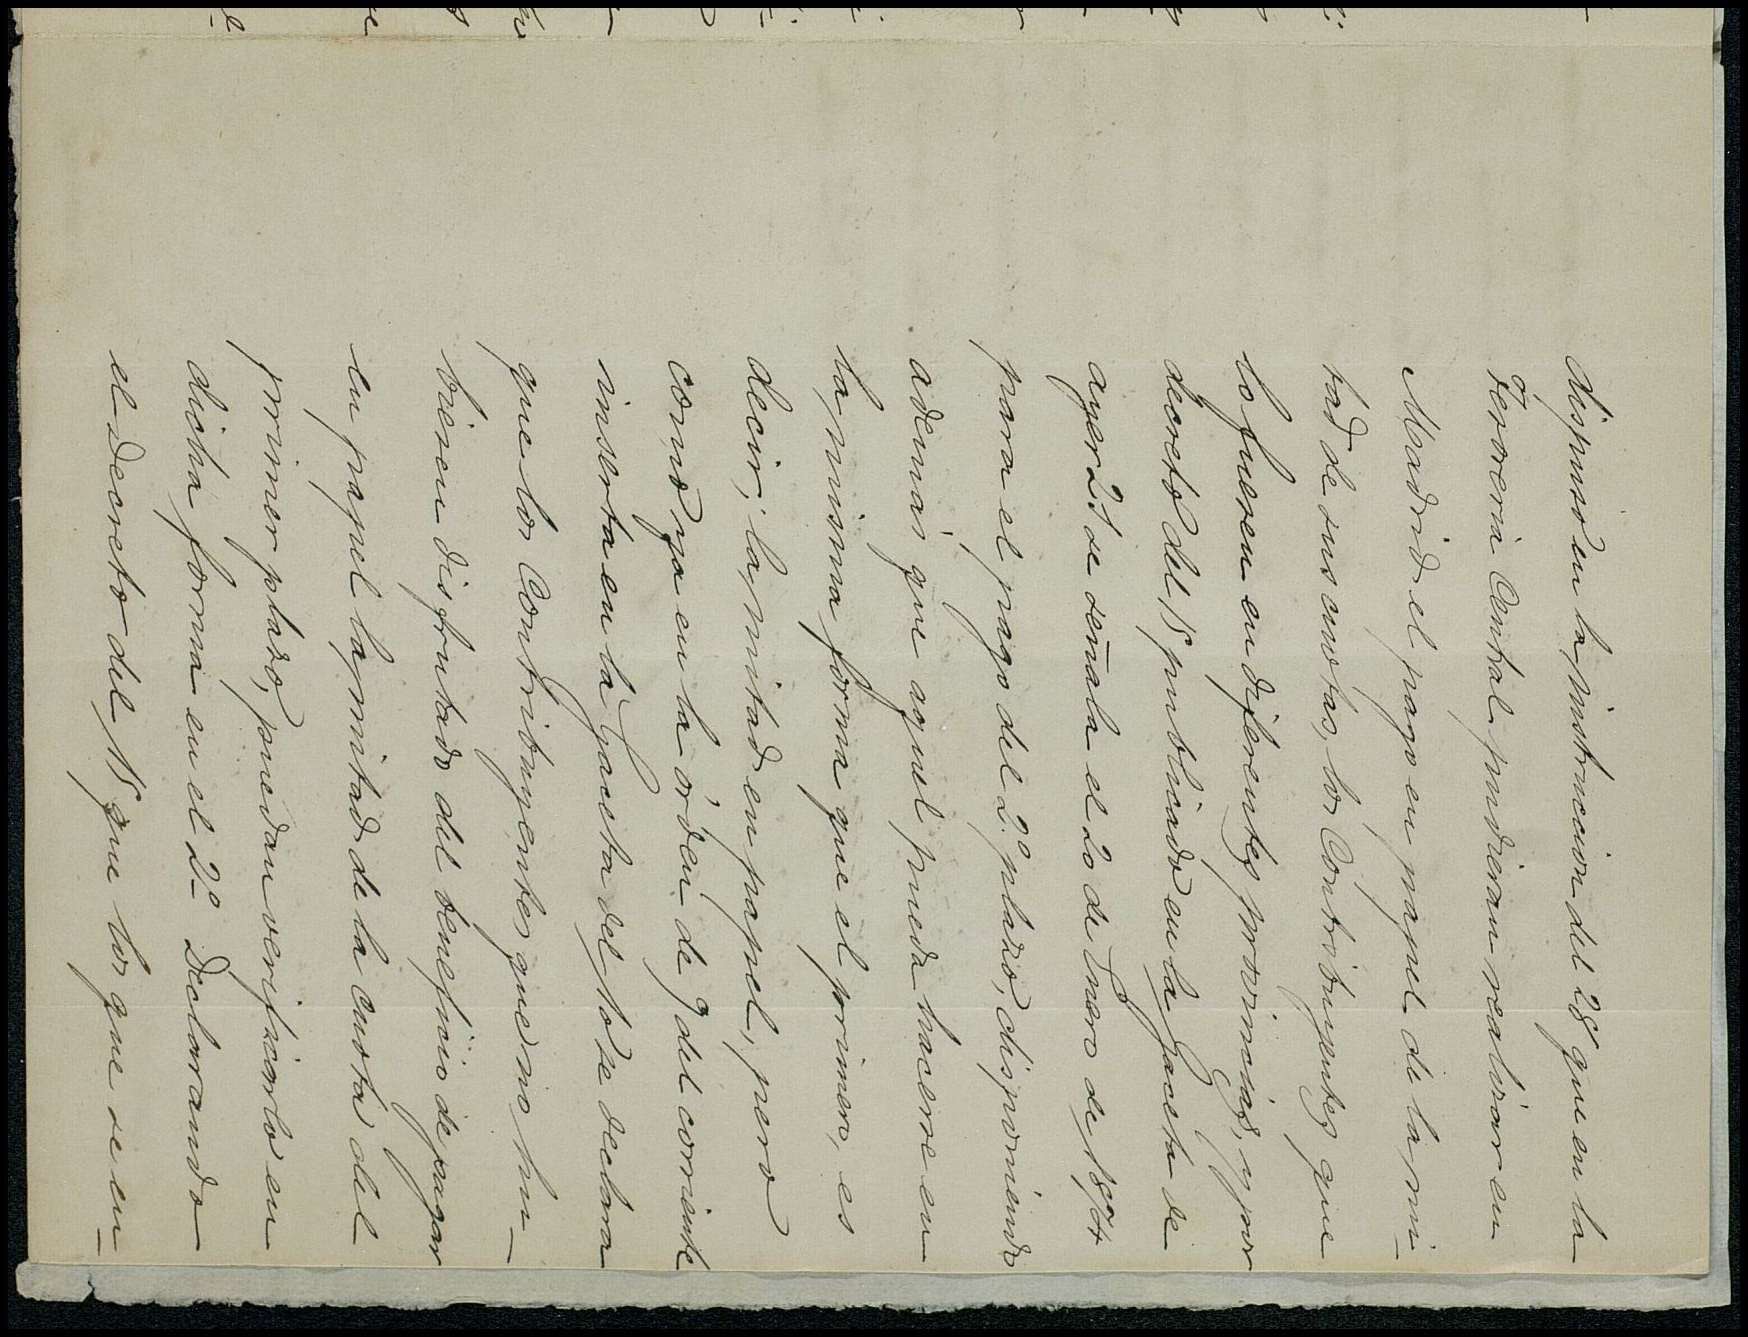 dispuso en la instruccion del 28 que en la
Tesoreria Central pudieran realizar en
Madrid el pago en papel de la mi-
tad de sus cuotas, los Contribuyentes que
lo fuesen en diferentes provincias, y por
decreto del 18 publicado en la Gaceta de
ayer 21 se señala el 20 de Enero de 1874
para el pago del 2.º plazo, disponiendo
ademas que aquel pueda hacerse en
la misma forma que el primero, es
decir, la mitad en papel, pero
como ya en la órden de 9 del corriente
inserta en la Gaceta del 10 se declara
que los Contribuyentes que no hu-
bieren disfrutado del beneficio de pagar
en papel la mitad de la cuota del
primer plazo, puedan verificarlo en
dicha forma en el 2º declarando
el decreto del 18 que los que se en-